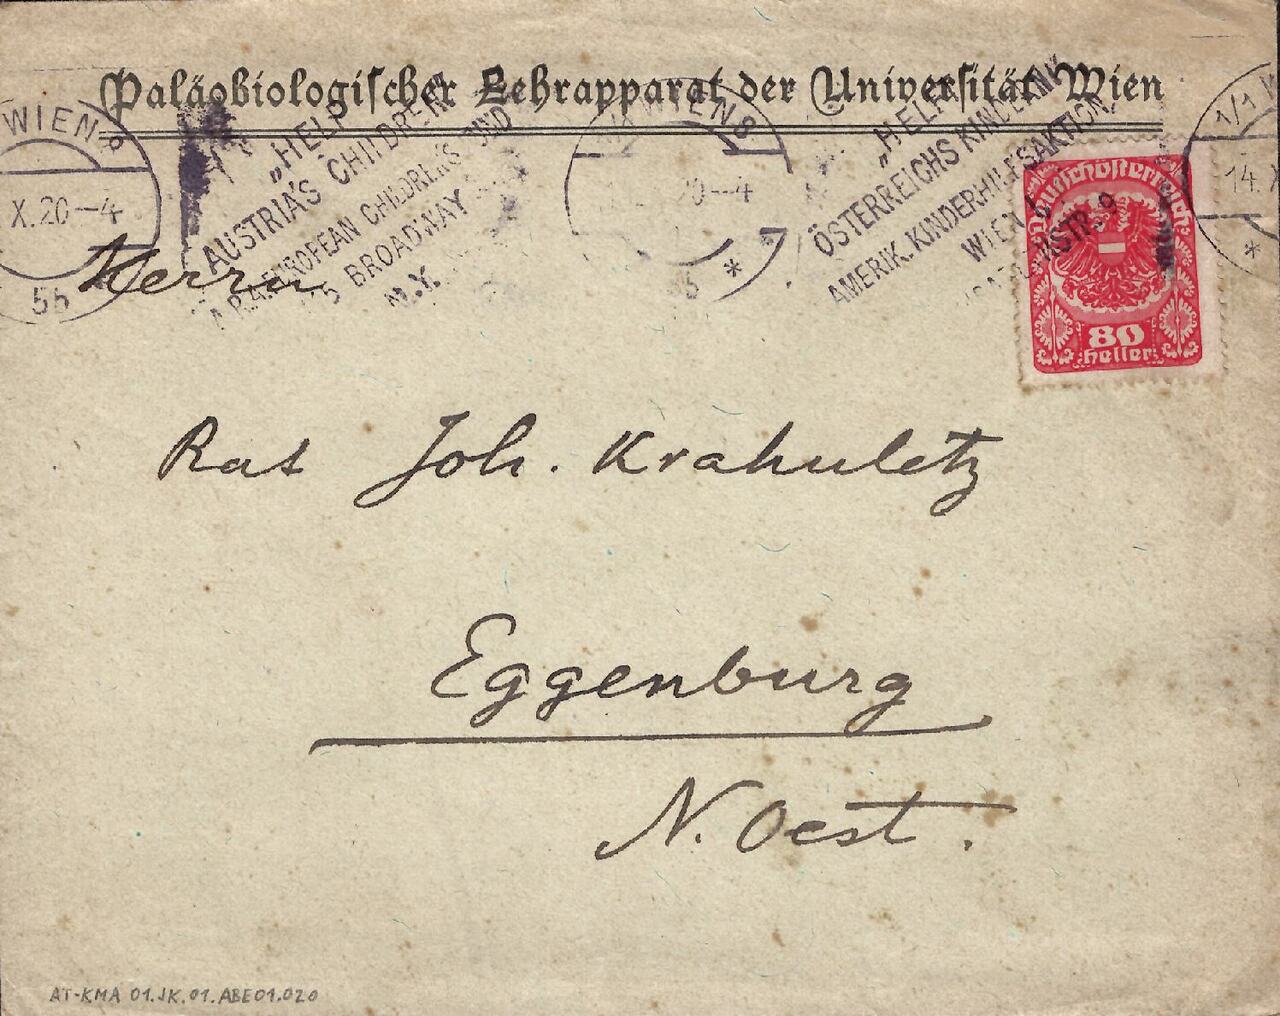 Paläobiologischer Lehrapparat der Universität Wien
WIEN 8
X.20–4
55
"HELP
AUSTRIA'S CHILDREN"
A.R.A. EUROPEAN CHILDREN'S FUND
BROADWAY
N.Y.
WIEN 8
20–4
"HELFT
ÖSTERREICHS KINDERN"
AMERIK. KINDERHILFSAKTION
WIEN
1/1 W
14.X
Deutschösterreich
80
heller
Herrn
Rat Joh. Krahuletz
Eggenburg
N. Oest.
AT-KMA 01.JK.01.ABE01.020